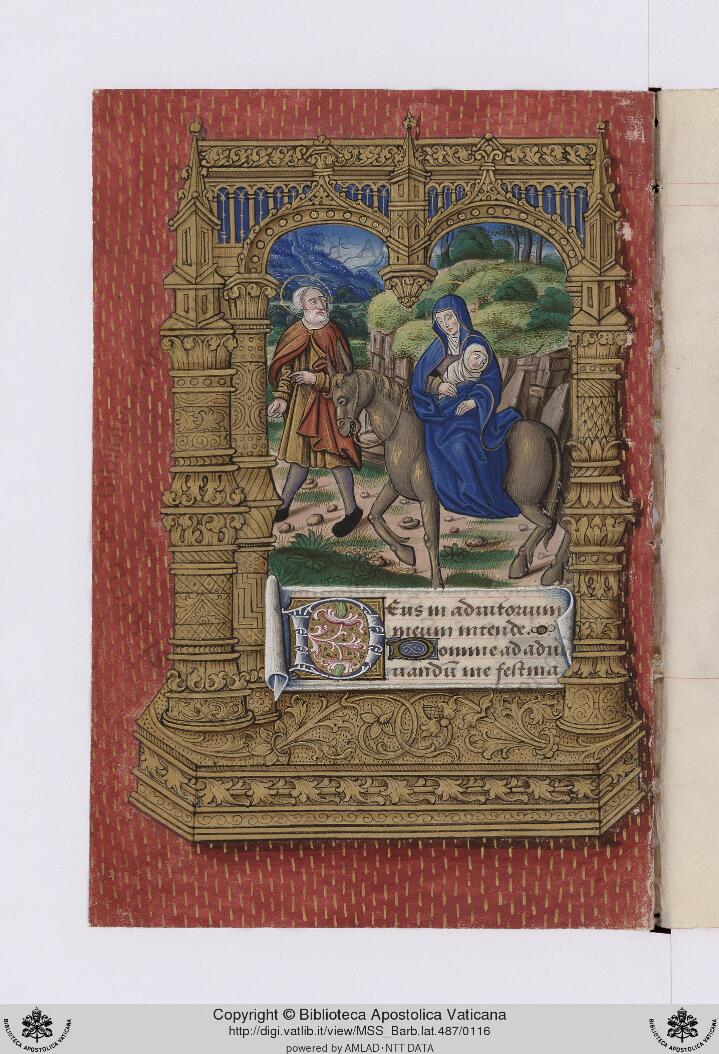 Deus in adiutorium
meum intende.
Domine ad adiu
uandū me festina
Copyright © Biblioteca Apostolica Vaticana
http://digi.vatlib.it/view/MSS_Barb.lat.487/0116
powered by AMLAD·NTT DATA
BIBLIOTECA APOSTOLICA VATICANA
BIBLIOTECA APOSTOLICA VATICANA